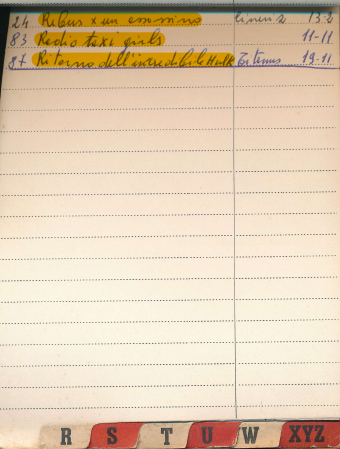 24 Rebus x un assassino Cinema 2 13-2
83 Radio taxi girls 11-11
87 Ritorno dell'incredibile Hulk Titanus 19-11
R S T U W XYZ